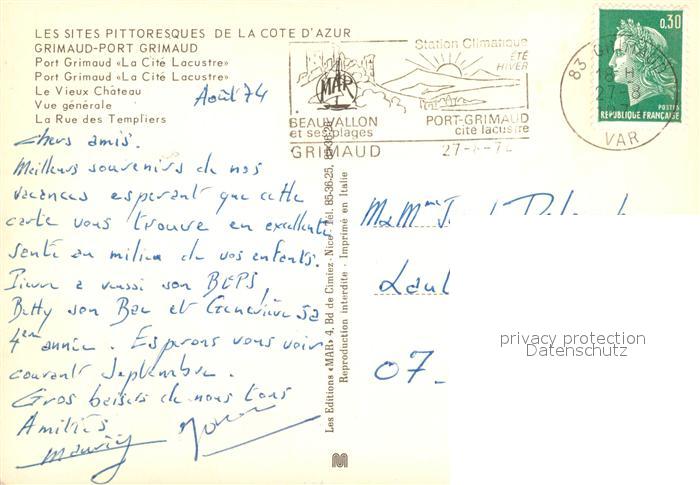 LES SITES PITTORESQUES DE LA COTE D'AZUR
GRIMAUD-PORT GRIMAUD
Port Grimaud «La Cité Lacustre»
Port Grimaud «La Cité Lacustre»
Le Vieux Château
Vue générale
La Rue des Templiers
Août 74
Chers amis.
Meilleurs souvenirs de nos
vacances esperant que cette
carte vous trouve en excellente
santé au milieu de vos enfants.
Pierre a reussi son BEPS,
Betty son Bac et Geneviève sa
4em année. Esperons vous voir
courant Septembre.
Gros baisers de nous tous
Amitiés
Les Editions «MAR» 4, Bd de Cimiez - Nice - Tél. 85-36-25,
Reproduction interdite - Imprimé en Italie
MAR
Station Climatique
ÉTÉ
HIVER
BEAUVALLON
et ses plages
PORT-GRIMAUD
cité lacustre
GRIMAUD
83
18 H
27-8
VAR
0,30
POSTES
REPUBLIQUE FRANÇAISE
M & Mme
07-
privacy protection
Datenschutz